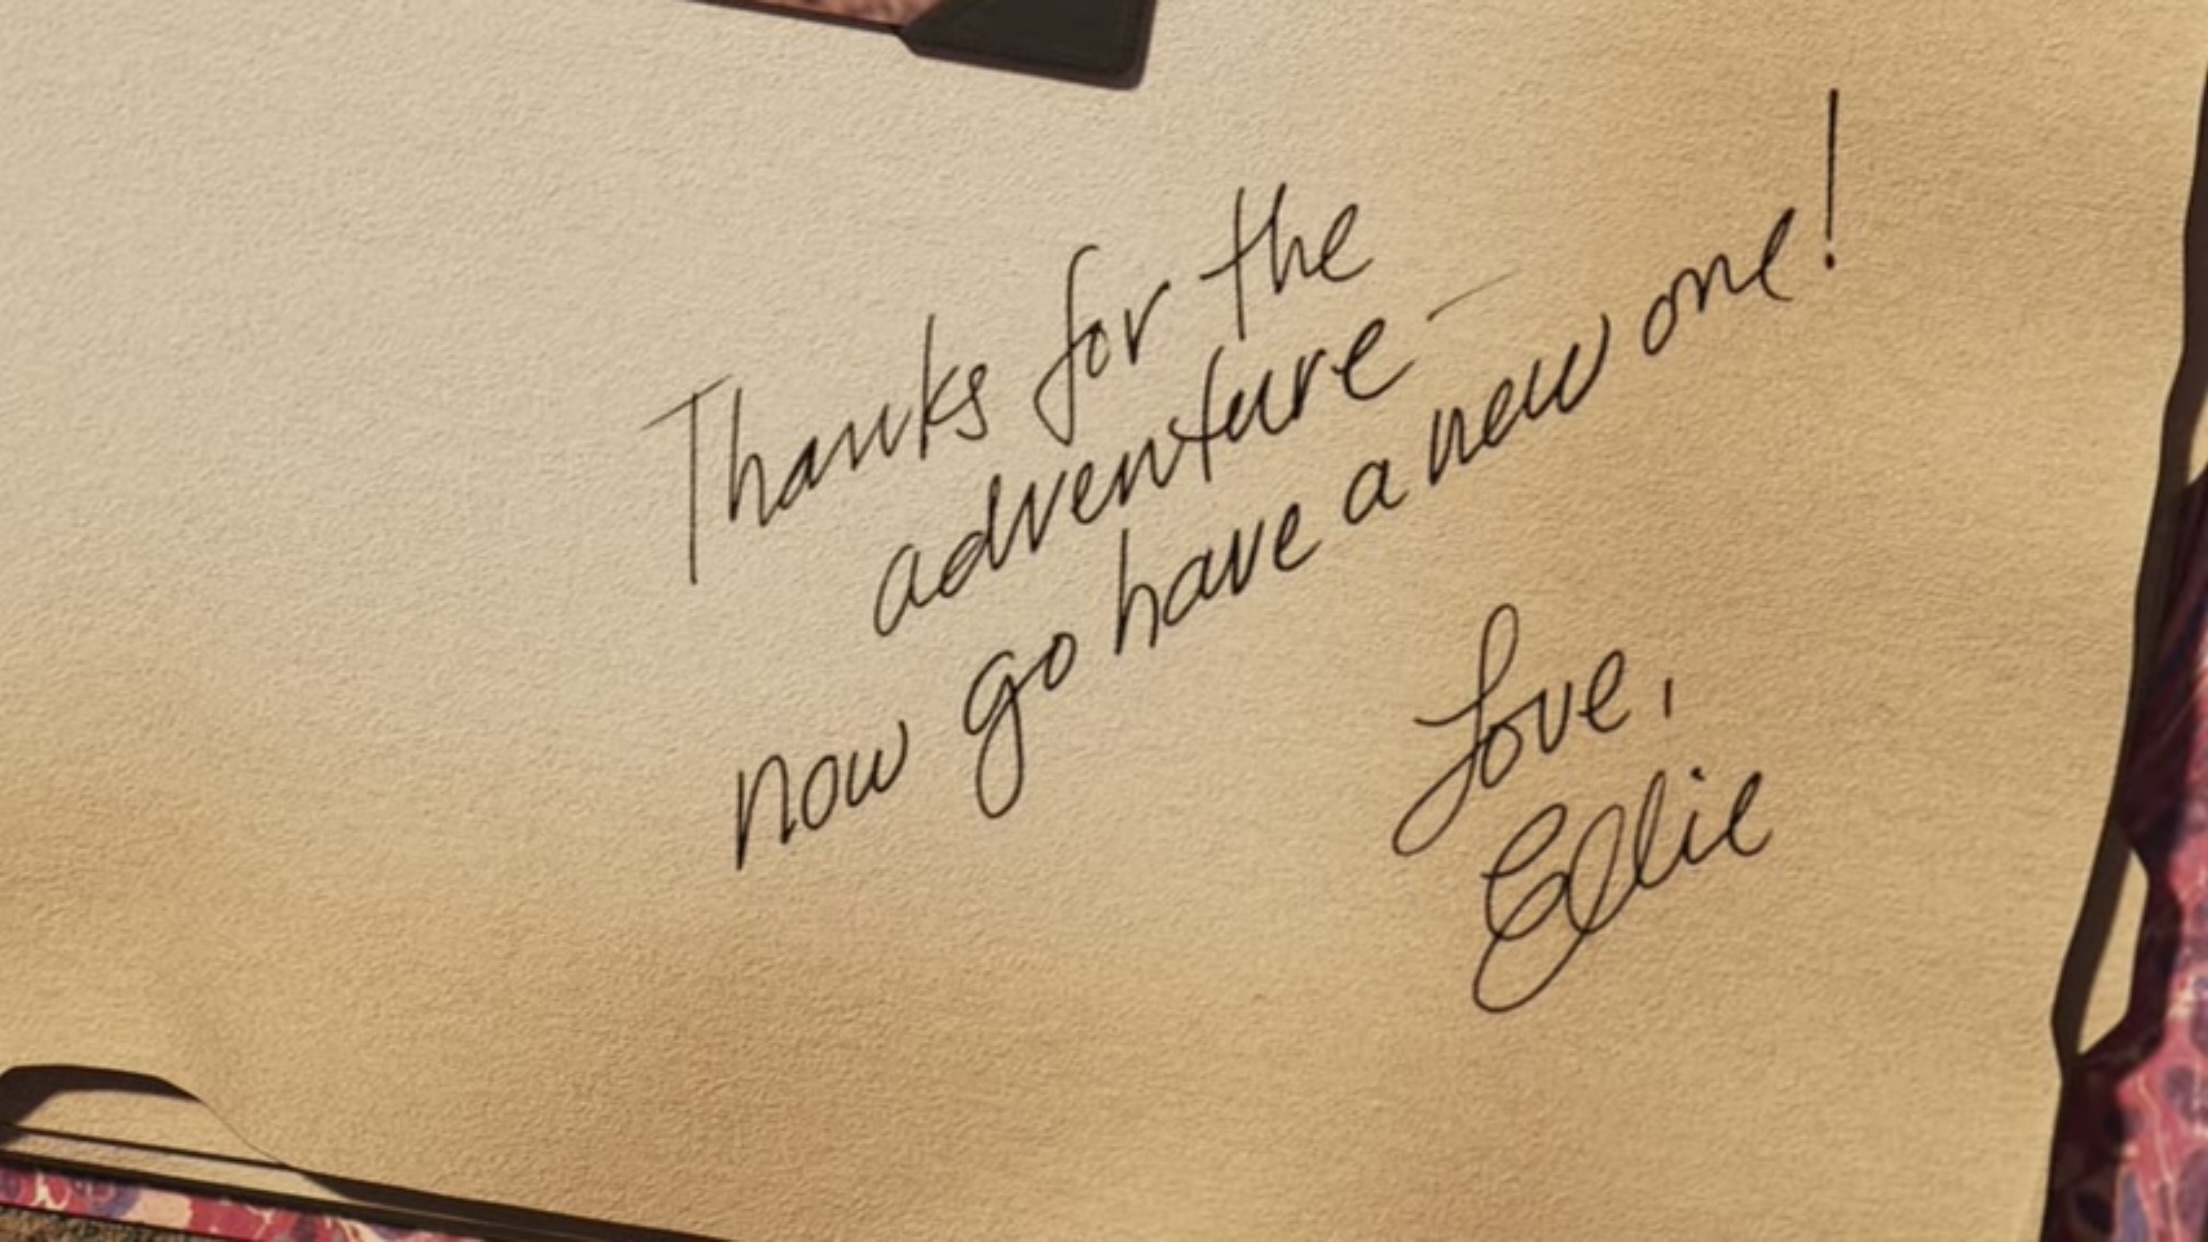 Thanks for the
adventure –
now go have a new one!
Love,
Ellie